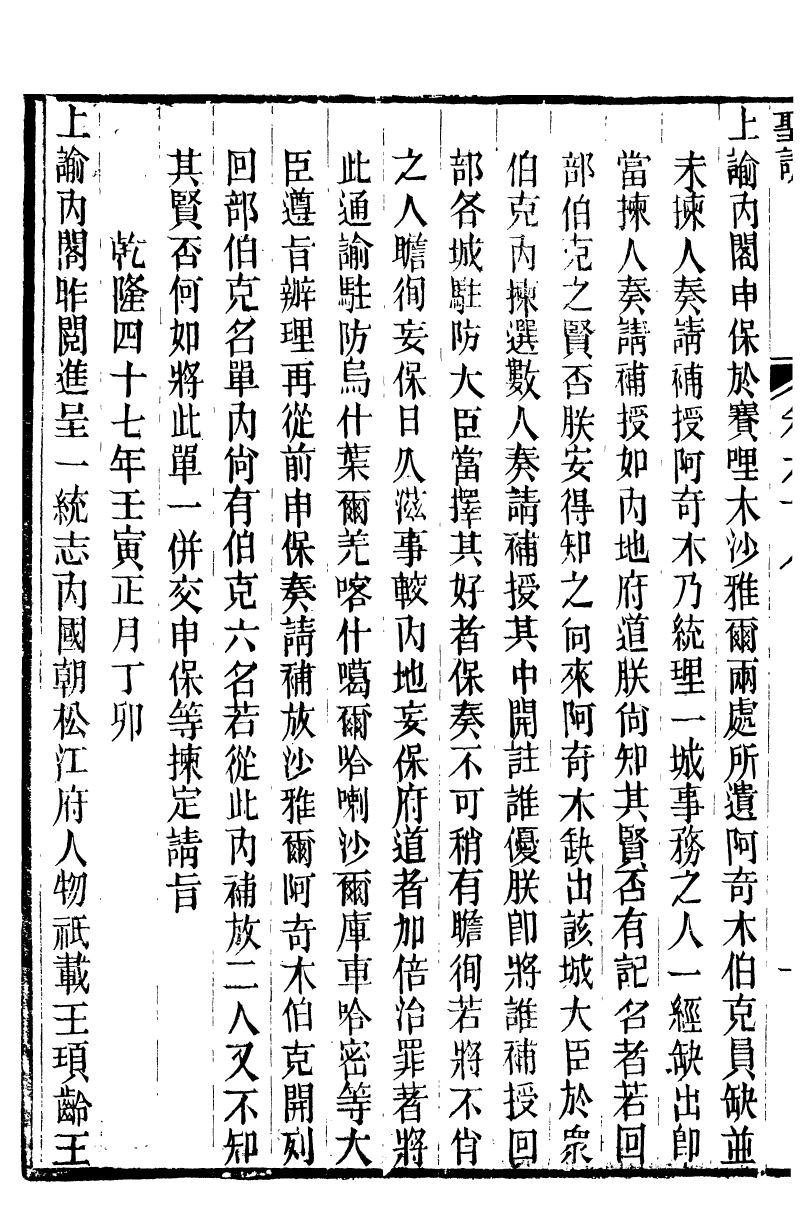 聖訓
上諭內閣申保於賽哩木沙雅爾兩處所遺阿奇木伯克員缺並
未揀人奏請補授阿奇木乃統理一城事務之人一經缺出卽
當揀人奏請補授如內地府道朕尙知其賢否有記名者若回
部伯克之賢否朕安得知之向來阿奇木缺出該城大臣於衆
伯克內揀選數人奏請補授其中開註誰優朕卽將誰補授回
部各城駐防大臣當擇其好者保奏不可稍有瞻徇若將不肖
之人瞻徇妄保日久滋事較內地妄保府道者加倍治罪著將
此通諭駐防烏什葉爾羌喀什噶爾哈喇沙爾庫車哈密等大
臣遵旨辦理再從前申保奏請補放沙雅爾阿奇木伯克開列
回部伯克名單內尙有伯克六名若從此內補放二人又不知
其賢否何如將此單一併交申保等揀定請旨
乾隆四十七年壬寅正月丁卯
上諭內閣昨閱進呈一統志內國朝松江府人物祇載王頊齡王